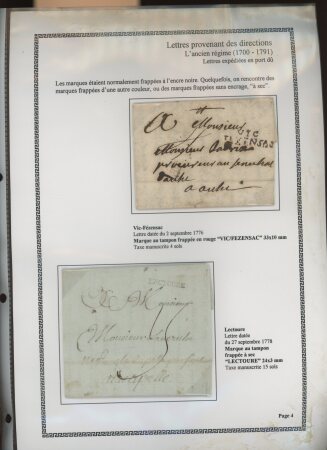 Lettres provenant des directions
L'ancien régime (1700 - 1791)
Lettres expédiées en port dû
Les marques étaient normalement frappées à l'encre noire. Quelquefois, on rencontre des
marques frappées d'une autre couleur, ou des marques frappées sans encrage, "à sec".
A Monsieur
VIC
FEZENSAC
Monsieur
procureur au senechal
a auch
Vic-Fézensac
Lettre datée du 2 septembre 1776
Marque au tampon frappée en rouge "VIC/FEZENSAC" 33x10 mm
Taxe manuscrite 4 sols
LECTOURE
A Monsieur
Monsieur
Lectoure
Lettre datée
du 27 septembre 1778
Marque au tampon
frappée à sec
"LECTOURE" 24x3 mm
Taxe manuscrite 15 sols
Page 4